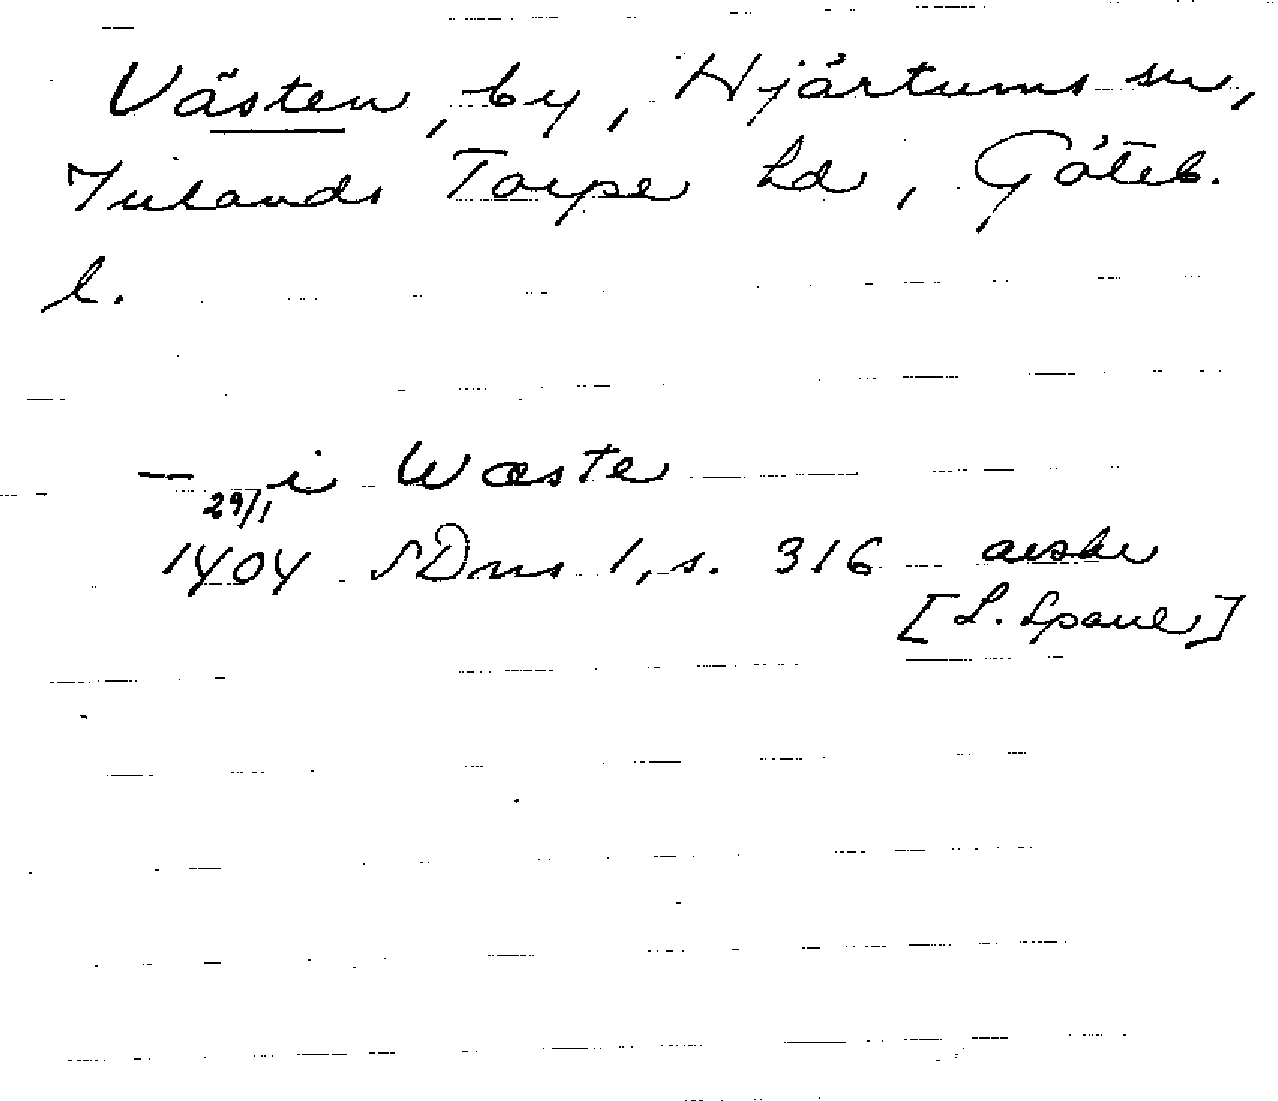 Västen, by, Hjärtums sn,
Inlands Torpe hd, Göteb.
l.
— i Wæste
29/1
1404 SDns 1, s. 316 avskr
[L. Spane]